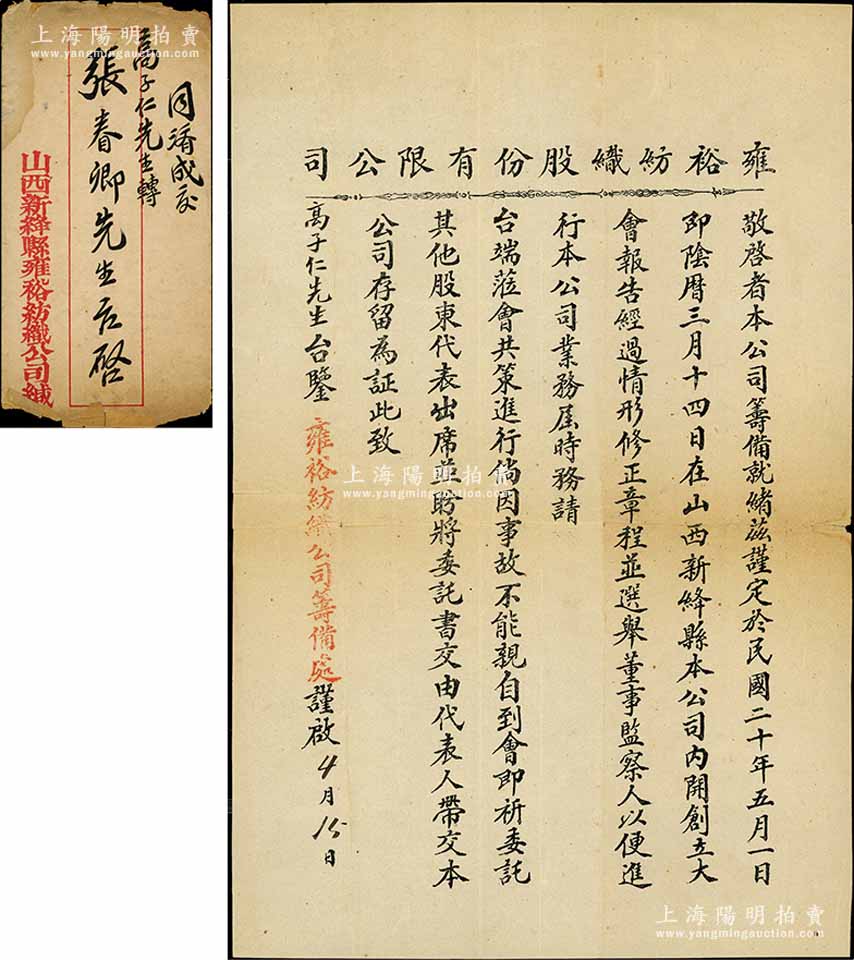 上海陽明拍賣
www.yangmingauction.com
同濟成交
高子仁先生轉
張春卿先生台啓
山西新絳縣雍裕紡織公司緘
上海陽明拍賣
www.yangmingauction.com
雍裕紡織股份有限公司
敬啓者本公司籌備就緒茲謹定於民國二十年五月一日
即陰曆三月十四日在山西新絳縣本公司内開創立大
會報告經過情形修正章程並選舉董事監察人以便進
行本公司業務屆時務請
台端蒞會共策進行倘因事故不能親自到會即祈委託
其他股東代表出席並盼將委託書交由代表人帶交本
公司存留為証此致
高子仁先生台鑒 雍裕紡織公司籌備處謹啟 4月15日
上海陽明拍賣
www.yangmingauction.com
上海陽明拍賣
www.yangmingauction.com